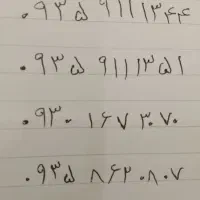 ۰۹۳۵ ۹۱۱۱۳۴۴
۰۹۳۵ ۹۱۱۱۳۵۱
۰۹۳۰ ۱۶۷ ۳۰۷۰
۰۹۳۵ ۸۶۲۰۸۰۷